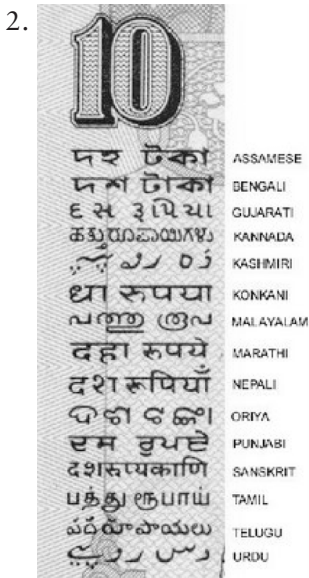 2.
10
দহ টকা ASSAMESE
দশ টাকা BENGALI
દસ રૂપિયા GUJARATI
ಹತ್ತು ರೂಪಾಯಿಗಳು KANNADA
KASHMIRI
धा रुपया KONKANI
പത്തു രൂപ MALAYALAM
दहा रुपये MARATHI
दश रुपियाँ NEPALI
ଦଶ ଟଙ୍କା ORIYA
ਦਸ ਰੁਪਏ PUNJABI
दशरूप्यकाणि SANSKRIT
பத்து ரூபாய் TAMIL
పది రూపాయలు TELUGU
دس روپے URDU